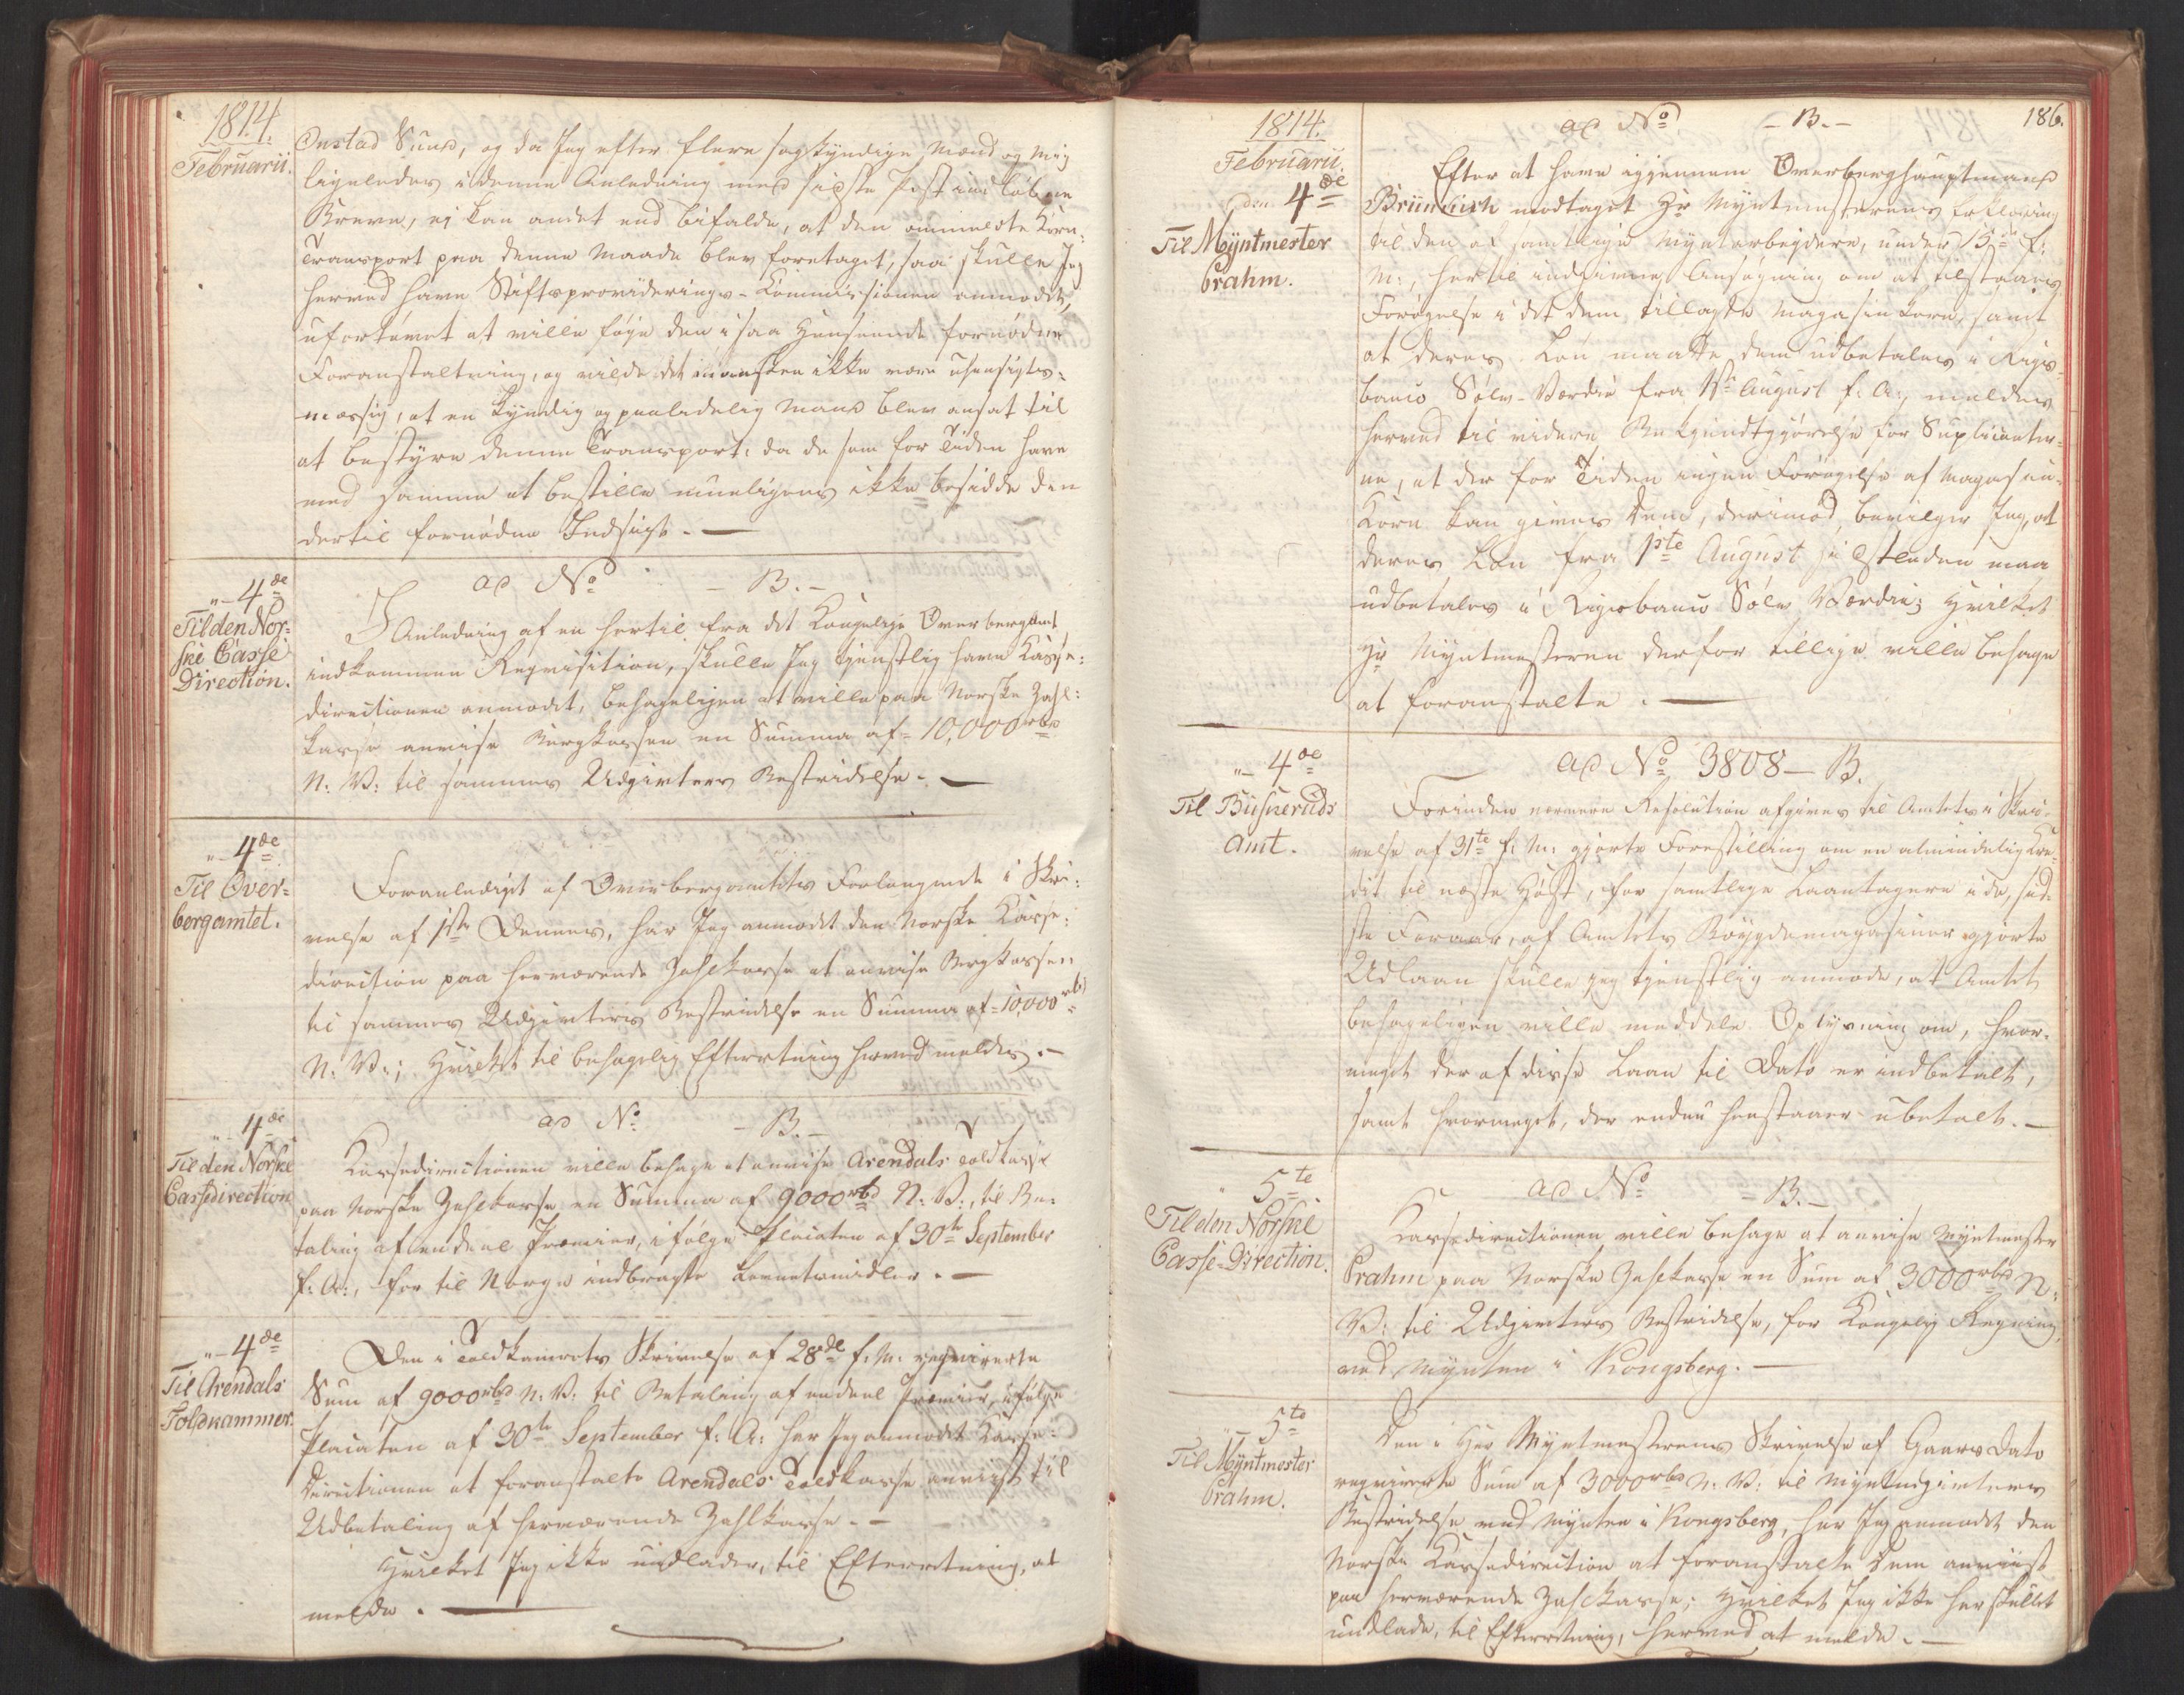 1814.
Februarii.
Onstad Sund, og da Jeg efter flere sagkyndige Mænd og mig
ligeledes i denne Anledning med sidste Post indløbne
Breve, ej kan andet end bifalde, at den ommeldte Korn-
Transport paa denne Maade blev foretaget, saa skulle Jeg
herved have Stiftsproviderings-Kommissionen anmodet,
ufortøvet at ville føye den i saa Henseende fornødne
Foranstaltning, og vilde det maaskee ikke være uhensigts-
mæssig, at en kyndig og paalidelig Mand blev ansat til
at bestyre denne Transport, da de som for Tiden have
med samme at bestille mueligens ikke besidde den
dertil fornødne Indsigt. —
"– 4de
Til den Nor-
ske Casse
Direction.
ad No – B. –
I Anledning af en hertil fra det Kongelige Overbergamt
indkommen Reqvisition, skulle Jeg tjenstlig have Kasse-
directionen anmodet, behageligen at ville paa Norske Zahl-
kasse anvise Bergkassen en Summa af 10,000 rbd
N: V: til sammes Udgivters Bestridelse. —
"– 4de
Til Over-
bergamtet.
Foranlediget af Overbergamtets Forlangende i Skri-
velse af 1ste Dennes, har Jeg anmodet den Norske Kasse-
direction paa herværende Zahlkasse at anvise Bergkassen
til sammes Udgivters Bestridelse en Summa af 10,000 rbd
N: V:; Hvilket til behagelig Efterretning herved meldes. –
"– 4de
Til den Norske
Cassedirection
ad No – B. –
Kassedirectionen ville behage at anvise Arendals Toldkasse
paa Norske Zahlkasse en Summa af 9000 rbd N: V:, til Be-
taling af endeel Præmier, ifølge Placaten af 30te September
f: A:, for til Norge indbragte Levnetsmidler. —
"– 4de
Til Arendals
Toldkammer.
Den i Toldkamrets Skrivelse af 28de f. M. reqvirerte
Sum af 9000 rbd N: V: til Betaling af endeel Præmier, ifølge
Placaten af 30te September f: A: har Jeg anmodet Kasse-
Directionen at foranstalte Arendals Toldkasse anvist til
Udbetaling af herværende Zahlkasse. –
Hvilket Jeg ikke undlader, til Efterretning, at
melde. —
186.
1814.
Februarii.
den 4de
Til Myntmester
Prahm.
ad No – B. –
Efter at have igjennem Overberghauptmand
Brünnich modtaget Hr Myntmesterens Erklæring
til den af samtlige Myntarbeydere, under 15de f:
M:, hertil indgivne Ansøgning om at tilstaaes
Forøgelse i det dem tillagte Magasinkorn, samt
at deres Løn maatte dem udbetales i Rigs-
banco Sølv-Værdie fra 1ste August f: A:, meldes
herved til videre Bekjendtgjørelse for Suplicanter-
ne, at der for Tiden ingen Forøgelse af Magasin-
Korn kan gives Dem, derimod bevilger Jeg, at
deres Løn fra 1ste August sidstleden maa
udbetales i Rigsbanco Sølv Værdie; Hvilket
Hr Myntmesteren derfor tillige ville behage
at foranstalte. —
"– 4de
Til Buskeruds
Amt.
ad No 3808 – B.
Forinden nærmere Resolution afgives til Amtets i Skri-
velse af 31te f: M: gjorte Forestilling om en almindelig Kre-
dit til næste Høst, for samtlige Laantagere i de, sid-
ste Foraar, af Amtets Bøygdemagasiner gjorte
Udlaan skulle jeg tjenstlig anmode, at Amtet
behageligen ville meddele Oplysning om, hvor-
meget der af disse Laan til Dato er indbetalt,
samt hvormeget, der endnu henstaaer ubetalt. —
" 5te
Til den Norske
Casse-Direction.
ad No – B. –
Kassedirectionen ville behage at anvise Myntmester
Prahm paa Norske Zahlkasse en Sum af 3000 rbd N:
V: til Udgivters Bestridelse, for Kongelig Regning,
ved Mynten i Kongsberg. —
"– 5te
Til Myntmester
Prahm.
Den i Herr Myntmesterens Skrivelse af Gaars Dato
reqvirerte Sum af 3000 rbd N: V: til Myntudgivternes
Bestridelse ved Mynten i Kongsberg, har Jeg anmodet den
Norske Kassedirection at foranstalte Dem anviist
paa herværende Zahlkasse; Hvilket Jeg ikke har skullet
undlade, til Efterretning, herved at melde. —